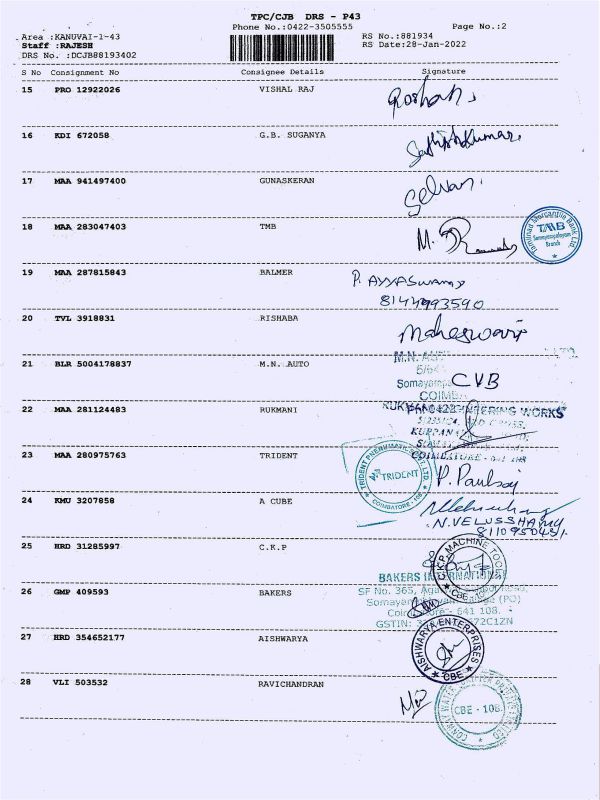 TPC/CJB DRS - P43
Phone No.:0422-3505555 Page No.:2
Area :KANUVAI-1-43 RS No.:881934
Staff :RAJESH RS Date:28-Jan-2022
DRS No. :DCJB88193402
S No Consignment No Consignee Details Signature
15 PRO 12922026 VISHAL RAJ Roshan
16 KDI 672058 G.B. SUGANYA Sathishkumar
17 MAA 941497400 GUNASKERAN Selvan
18 MAA 283047403 TMB M.
Tamilnad Mercantile Bank Ltd.
TMB
Somayampalayam
Branch
19 MAA 287815843 BALMER P. AYYASwamy
8144993590
20 TVL 3918831 RISHABA Maheswari
21 BLR 5004178837 M.N. AUTO CVB
22 MAA 281124483 RUKMANI
ENGINEERING WORKS
COIMBATORE
23 MAA 280975763 TRIDENT P. Paulsaj
TRIDENT
COIMBATORE - 108
24 KMU 3207858 A CUBE
N.VELUSSHAMY
25 HRD 31285997 C.K.P
C.K.P. MACHINE TOOLS
26 GMP 409593 BAKERS
BAKERS INTERNATIONAL
SF No. 365,
(PO)
641 108.
GSTIN:
27 HRD 354652177 AISHWARYA
AISHWARYA ENTERPRISES
CBE
28 VLI 503532 RAVICHANDRAN
CBE - 108.